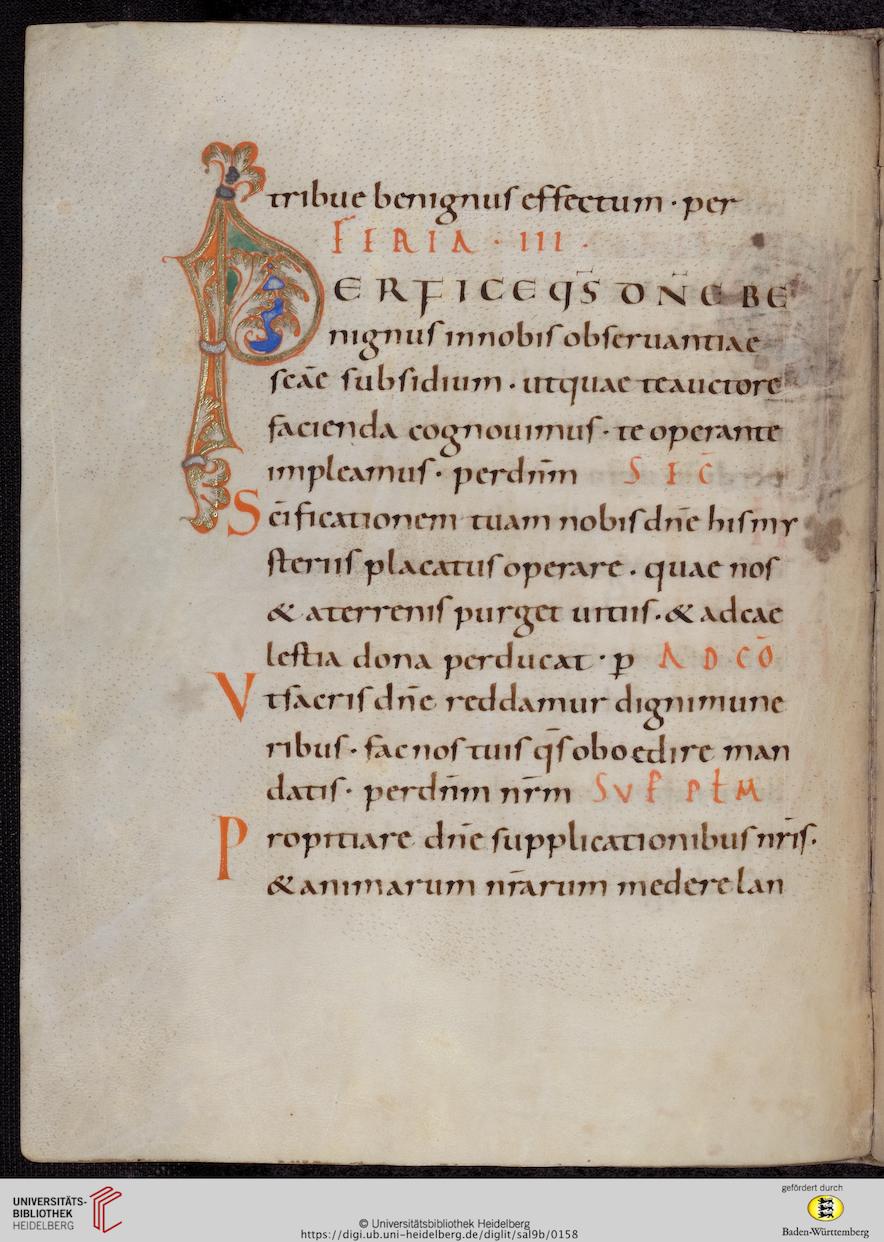 tribue benignus effectum · per
FERIA · III ·
PERFICE q̄s DÑE BE
nignus innobis obseruantiae
scāe subsidium · utquae teauctore
facienda cognouimus · te operante
impleamus · perdn̄m S I C̄
Sc̄ificationem tuam nobis dn̄e his my
steriis placatus operare · quae nos
& aterrenis purget uitiis · & adcae
lestia dona perducat · p̱ A D CŌ
Vt sacris dn̄e reddamur digni mune
ribus · fac nos tuis q̄s oboedire man
datis · perdn̄m nr̄m SVP PŁM
Propitiare dn̄e supplicationibus nr̄is ·
& animarum nr̄arum medere lan
UNIVERSITÄTS-
BIBLIOTHEK
HEIDELBERG
© Universitätsbibliothek Heidelberg
https://digi.ub.uni-heidelberg.de/diglit/sal9b/0158
gefördert durch
Baden-Württemberg